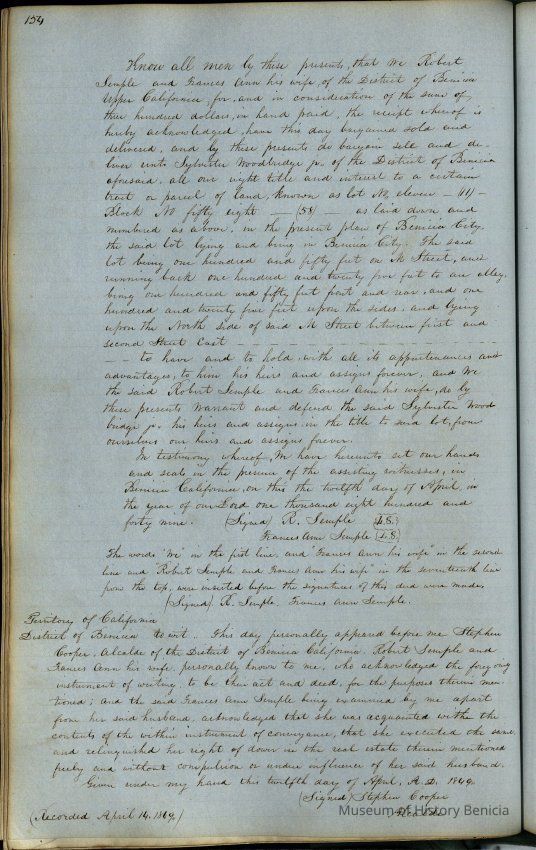 154
Know all men by these presents, that We Robert
Semple and Frances Ann his wife, of the District of Benicia
Upper California, for, and in consideration of the sum of,
three hundred dollars, in hand paid, the receipt whereof is
hereby acknowledged, have this day bargained sold and
delivered, and by these presents do bargain sell and de-
liver unto Sylvester Woodbridge jr. of the District of Benicia
aforesaid, all our right title and interest to a certain
tract or parcel of land, known as lot No, eleven - (11) -
Block No fifty eight - (58) - as laid down, and
numbered as above, in the present plan of Benicia City.
the said lot lying and being in Benicia City. The said
lot being one hundred and fifty feet on M Street, and
running back one hundred and twenty five feet to an alley,
being one hundred and fifty feet front and rear, and one
hundred and twenty five feet upon the sides, and lying
upon the North side of said M Street between first and
second Street East
- - to have and to hold, with all its appurtenances and
advantages, to him his heirs and assigns forever, and We
the said Robert Semple and Frances Ann his wife, do by
these presents Warrant and defend the said Sylvester Wood
bridge jr. his heirs and assigns, in the title to said lot, from
ourselves our heirs and assigns forever.
In testimony whereof, We have hereunto set our hands
and seals in the presence of the assisting witnesses, in
Benicia California, on this the twelfth day of April, in
the year of our Lord one thousand eight hundred and
forty nine. (Signed) R. Semple (L.S.)
Frances Ann Semple (L.S.)
The words "We" in the first line, and "Frances Ann his wife" in the second
line and "Robert Semple and Frances Ann his wife" in the seventeenth line
from the top, were inserted before the signatures of this deed were made.
(Signed) R. Semple, Frances Ann Semple.
Territory of California
District of Benicia to wit. This day personally appeared before me Stephen
Cooper, Alcalde of the District of Benicia California, Robert Semple and
Frances Ann his wife, personally known to me, who acknowledged the foregoing
instrument of writing, to be their act and deed, for the purposes therein men-
tioned; and the said Frances Ann Semple being examined by me apart
from her said husband, acknowledged that she was acquainted with the
contents of the within instrument of conveyance, that she executed the same,
and relinquished her right of dower in the real estate therein mentioned
freely and without compulsion or undue influence of her said husband.
Given under my hand this twelfth day of April, A.D. 1849.
(Signed) Stephen Cooper
Alcalde
(Recorded April 14, 1849.)
Museum of History Benicia